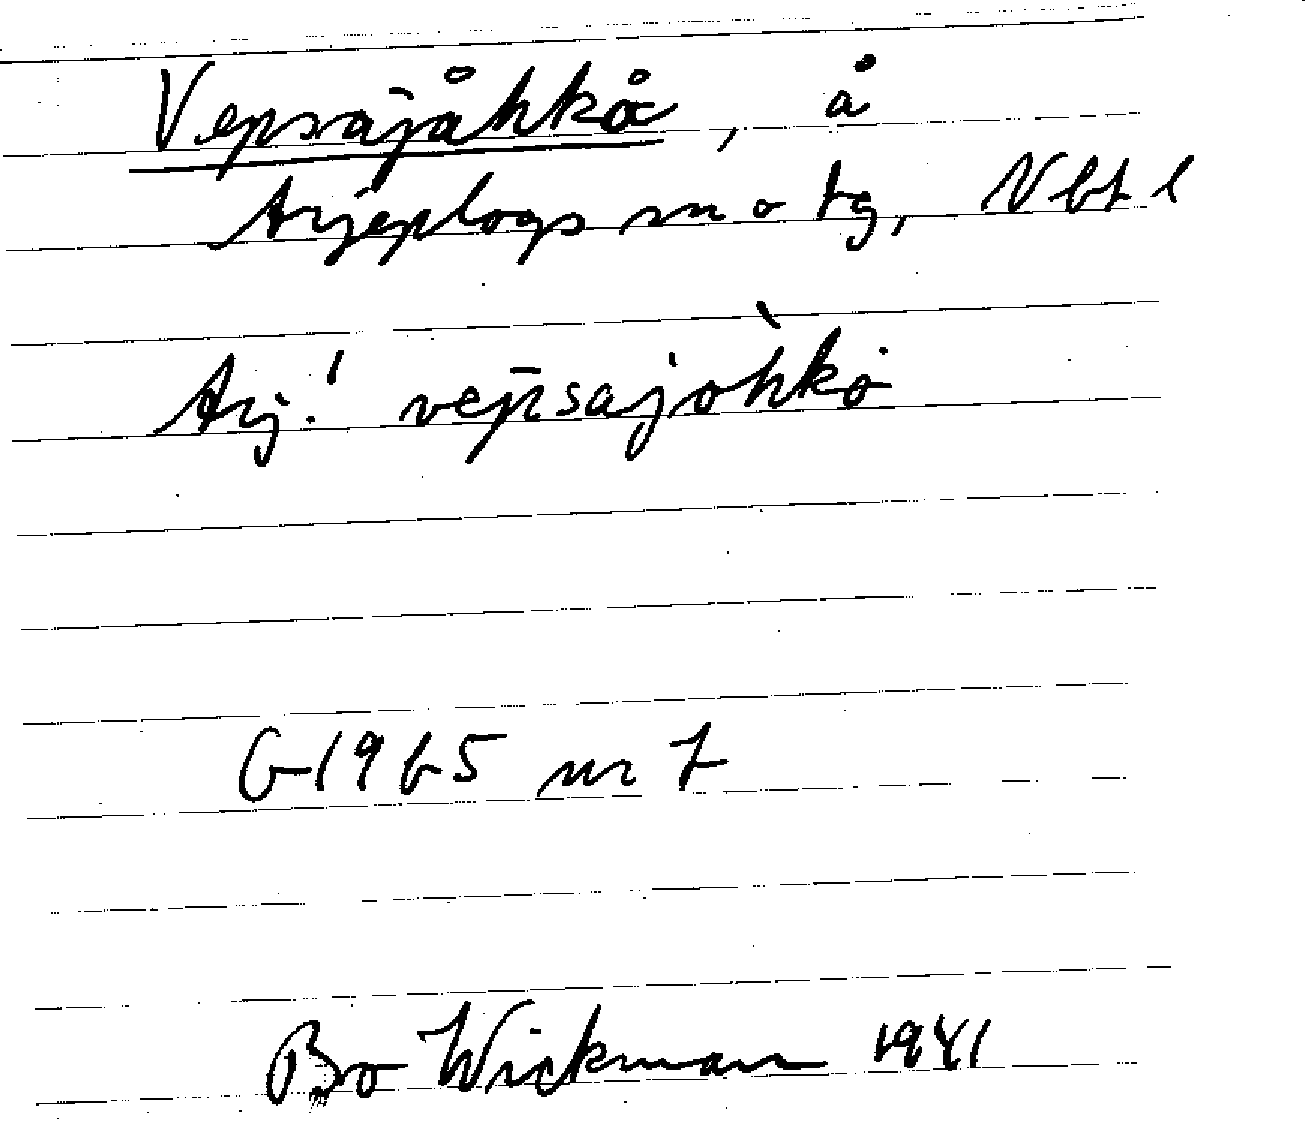 Vepsajåhkå, å
Arjeplogs sn o tg, Vbt l
Arj! vēp̄sajòhkȯ
G1965 nr 7
Bo Wickman 1941